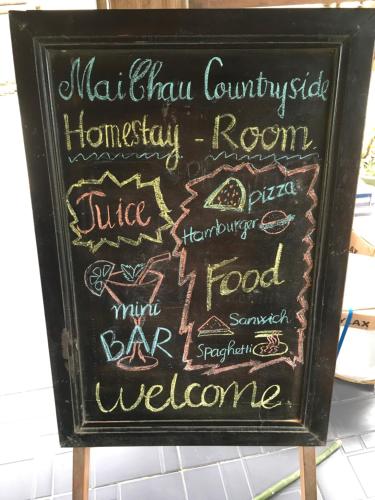 Mai Chau Countryside
Homestay - Room
Juice
pizza
Hamburger
Food
mini
BAR
Sanwich
Spaghetti
Welcome
AX